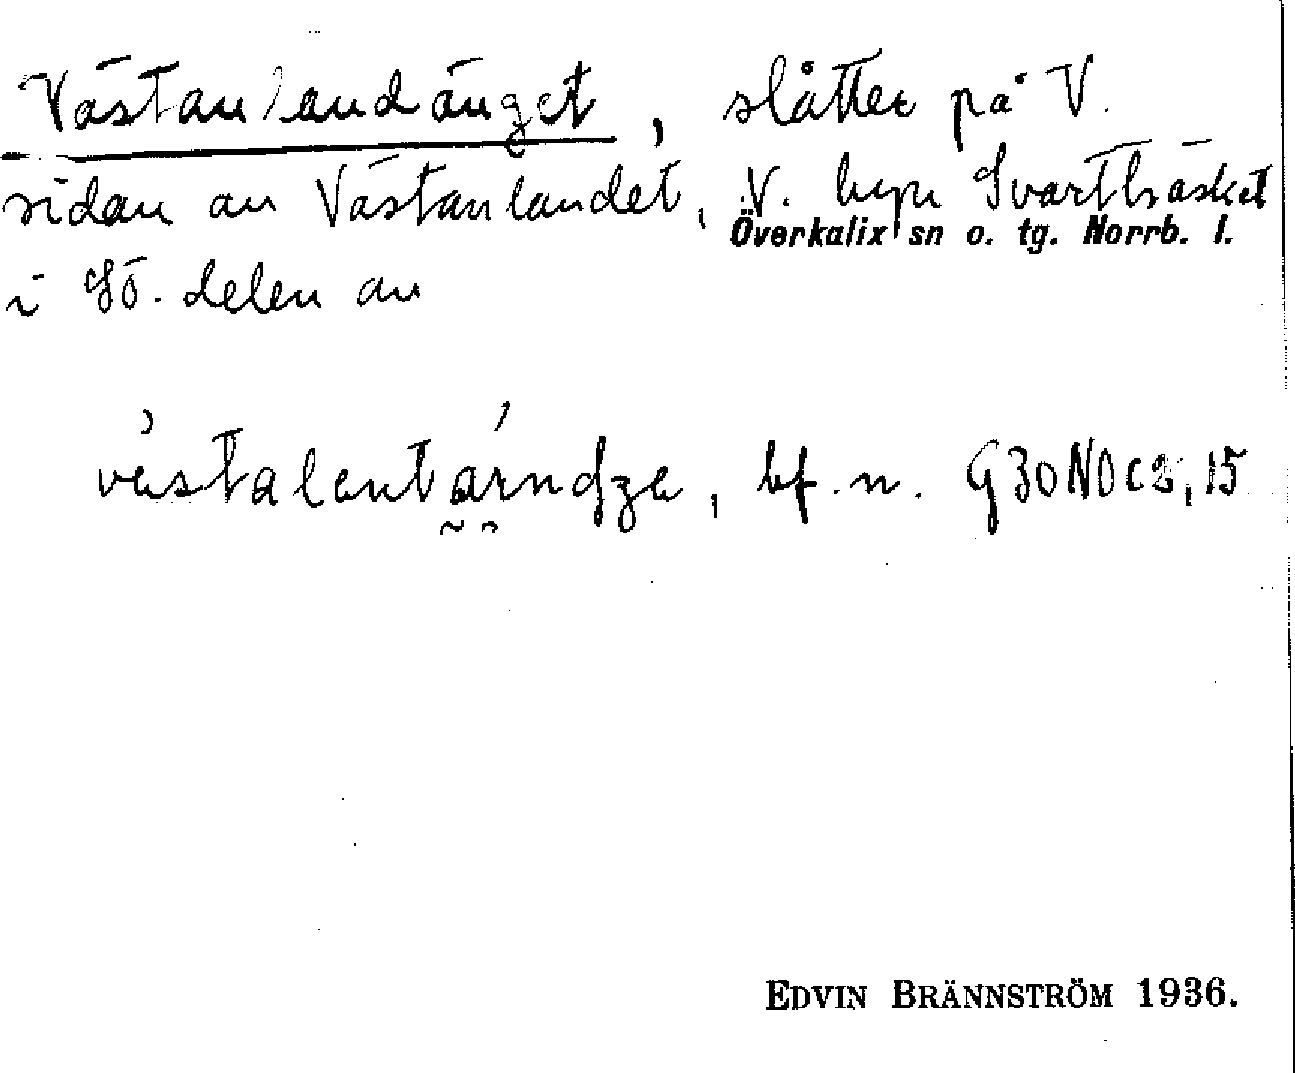 Västanlandänget, slåtter på V.
sidan av Västanlandet, V. byn Svartbräsket
Överkalix sn o. tg. Norrb. l.
i SÖ. delen av
bf. n. G30NOc2,15
EDVIN BRÄNNSTRÖM 1936.